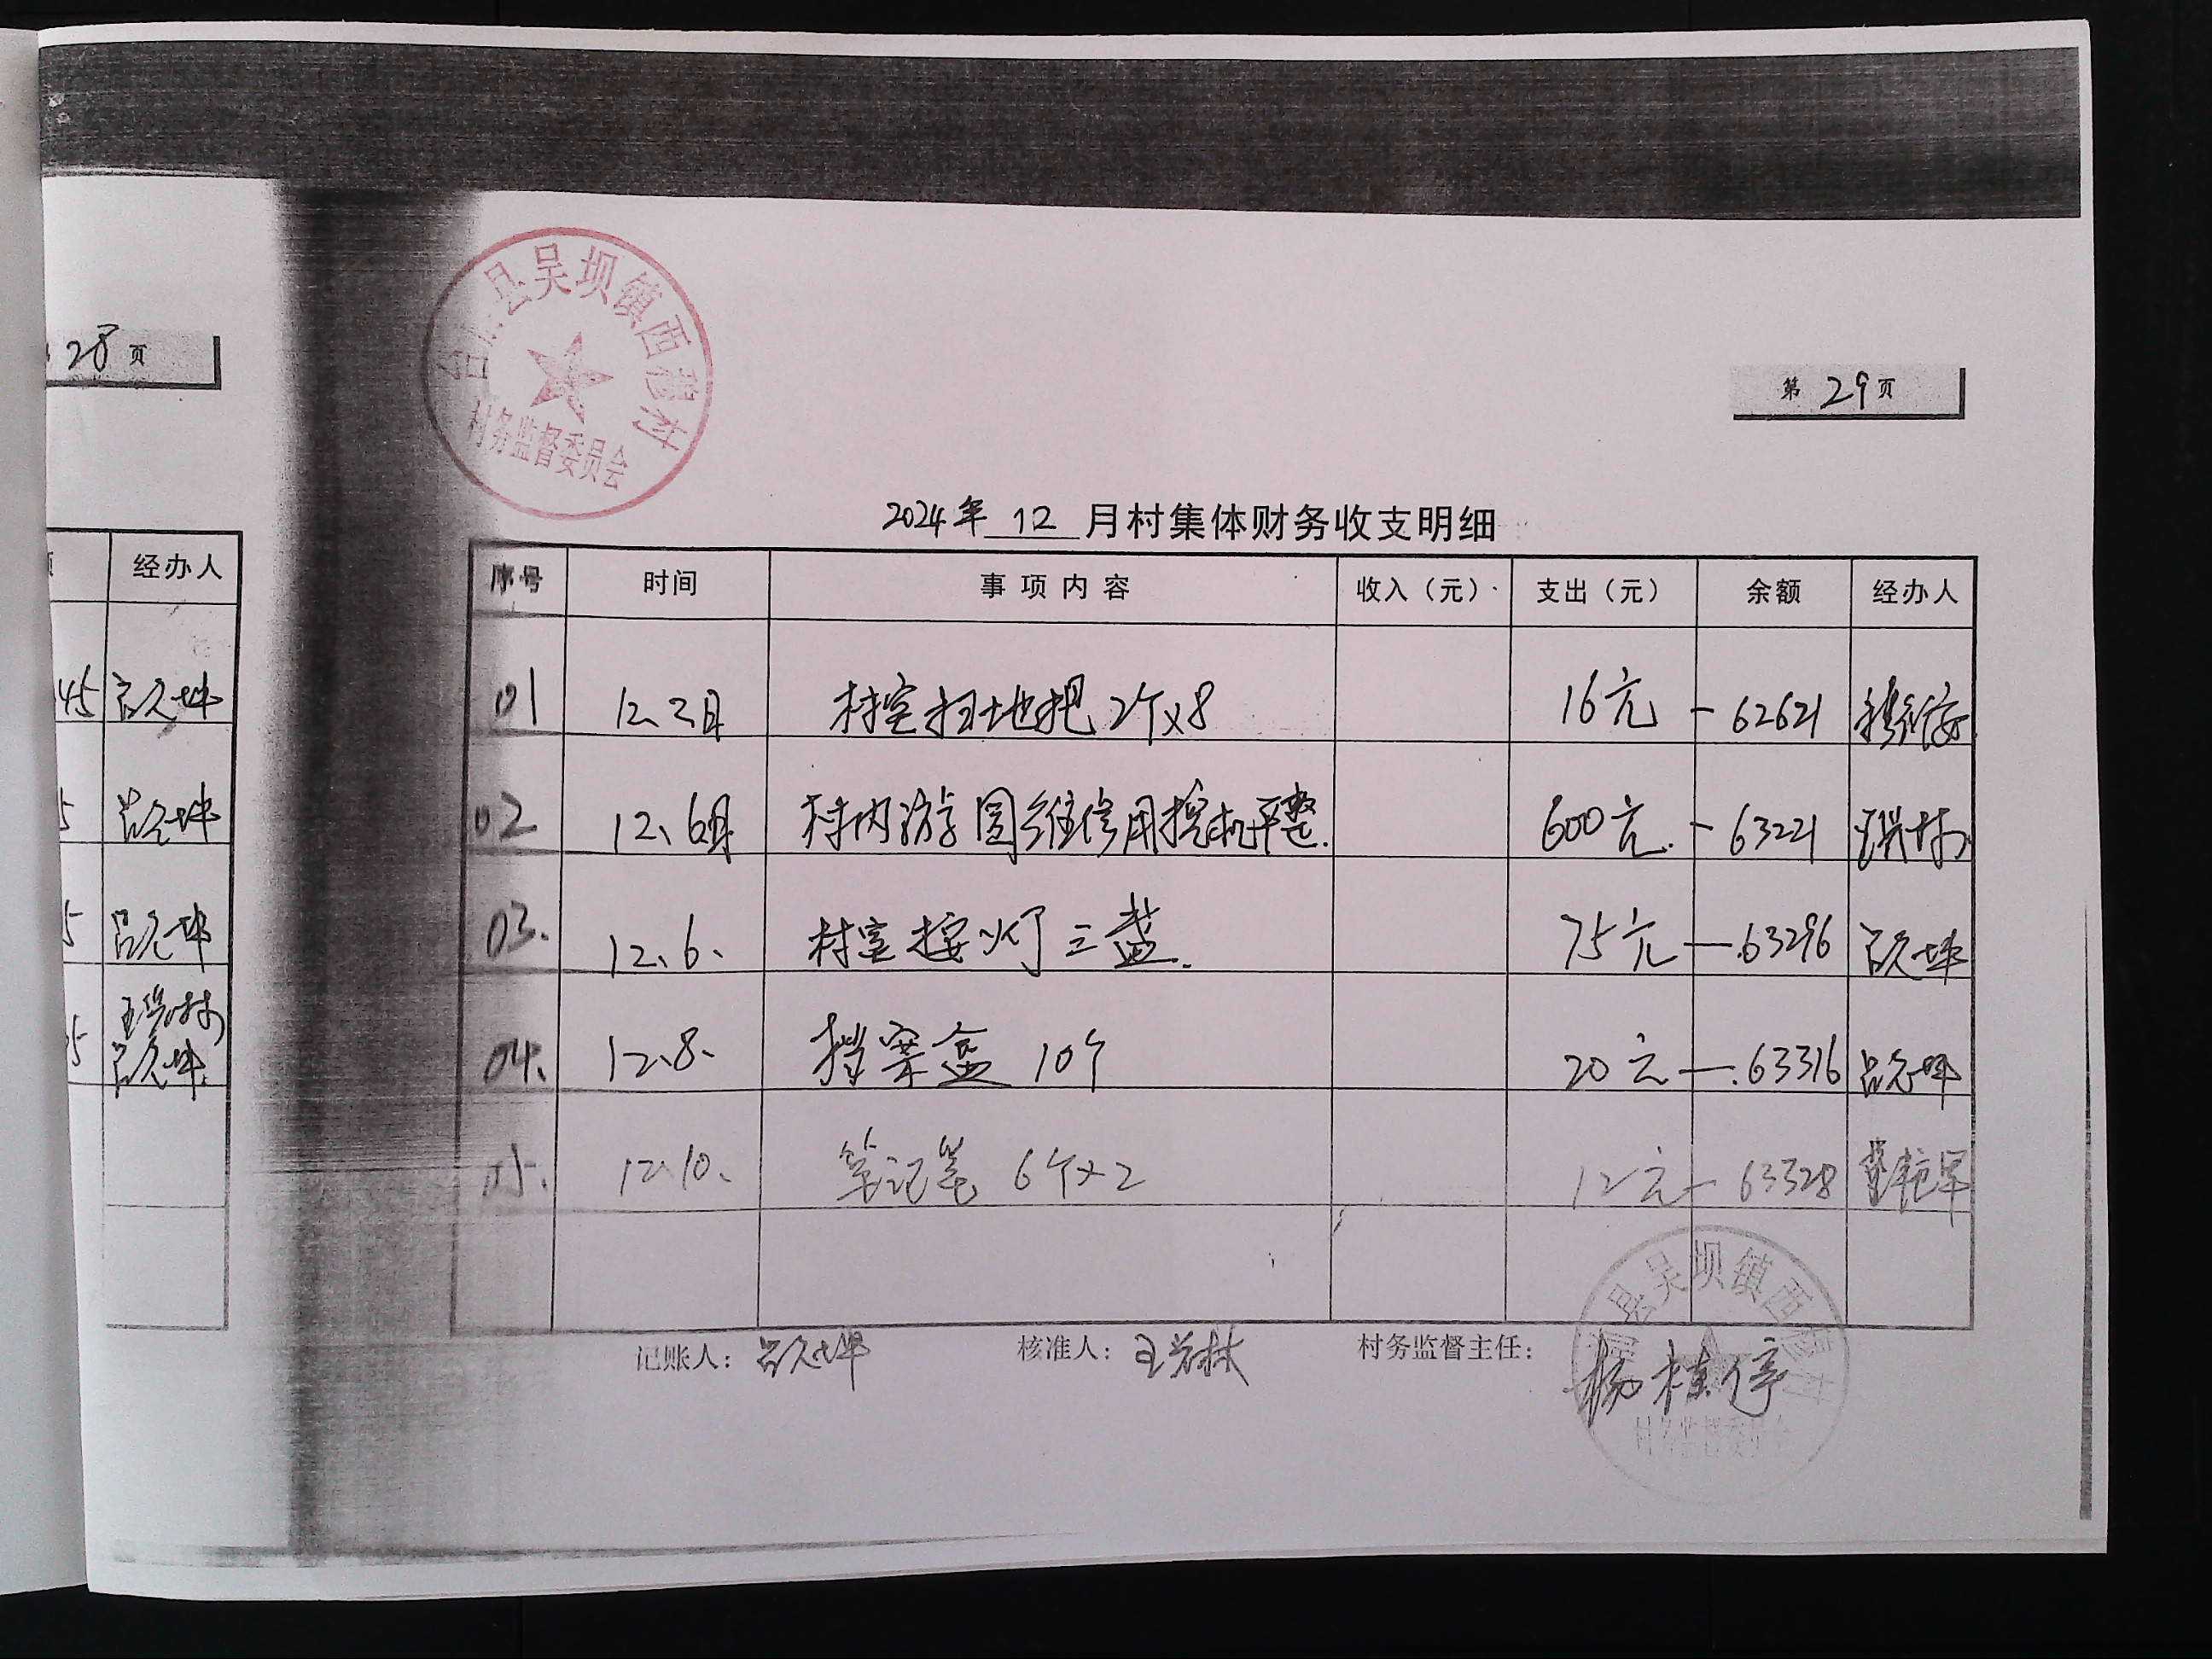 28页
经办人
45 吕久坤
5 吕久坤
5 吕久坤
王学林
5 吕久坤
县吴坝镇西程村
村务监督委员会
第29页
2024年 12 月村集体财务收支明细
序号 时间 事项内容 收入（元） 支出（元） 余额 经办人
01 12、2日 村室扫地把 2个x8 16元 -62621
02 12、6日 村内游园维修用挖机平整. 600元. -63221
03. 12、6、 村室接灯三盏. 75元 -63296 吕久坤
04. 12、8、 档案盒 10个 20元 -63316 吕久坤
05. 12、10、 笔记笔 6个x2 12元 -63328
记账人：吕久坤 核准人：王学林 村务监督主任：杨桂停
县吴坝镇西程村
村务监督委员会